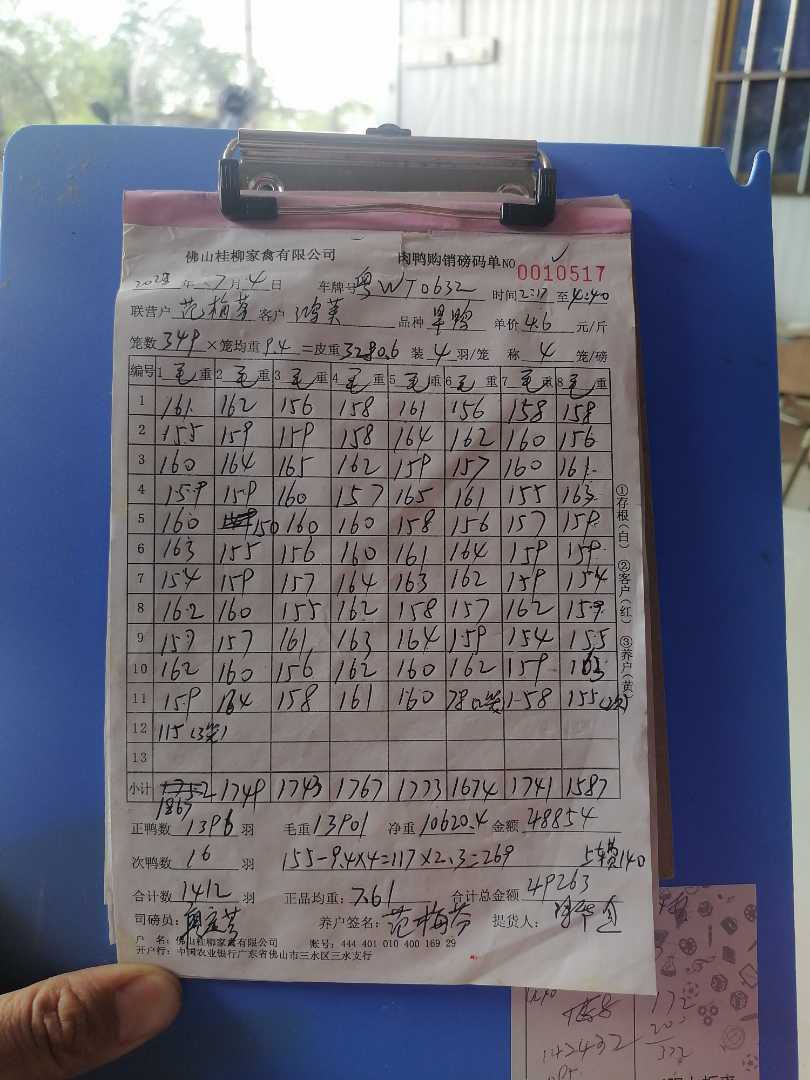 佛山桂柳家禽有限公司 肉鸭购销磅码单NO 0010517
年 7月4日 车牌号 粤WT0632 时间 2:17 至 4:40
联营户 范梅芬 客户 鸿英 品种 旱鸭 单价 4.6 元/斤
笼数 349 ×笼均重 9.4 =皮重 3280.6 装 4 羽/笼 称 4 笼/磅
编号 1 毛重 2 毛重 3 毛重 4 毛重 5 毛重 6 毛重 7 毛重 8 毛重
1 161 162 156 158 161 156 158 158
2 155 159 159 158 164 162 160 156
3 160 164 165 162 159 157 160 161
4 159 159 160 157 165 161 155 163
5 160 150 160 160 158 156 157 159
6 163 155 156 160 161 164 159 159
7 154 159 157 164 163 162 159 154
8 162 160 155 162 158 157 162 159
9 157 157 161 163 164 159 154 155
10 162 160 156 162 160 162 159 163
11 159 164 158 161 160 78(2笼) 158 155
12 115(3笼)
13
小计 1867 1749 1743 1767 1773 1674 1741 1587
正鸭数 1396 羽 毛重 13901 净重 10620.4 金额 48854
次鸭数 16 羽 155-9.4×4=117×2.3=269 140
合计数 1412 羽 正品均重: 7.61 合计总金额 49263
司磅员: 养户签名: 范梅芬 提货人:
户 名: 佛山桂柳家禽有限公司 账号: 444 401 010 400 169 29
开户行: 中国农业银行广东省佛山市三水区三水支行
①存根(白) ②客户(红) ③养户(黄)
172
20